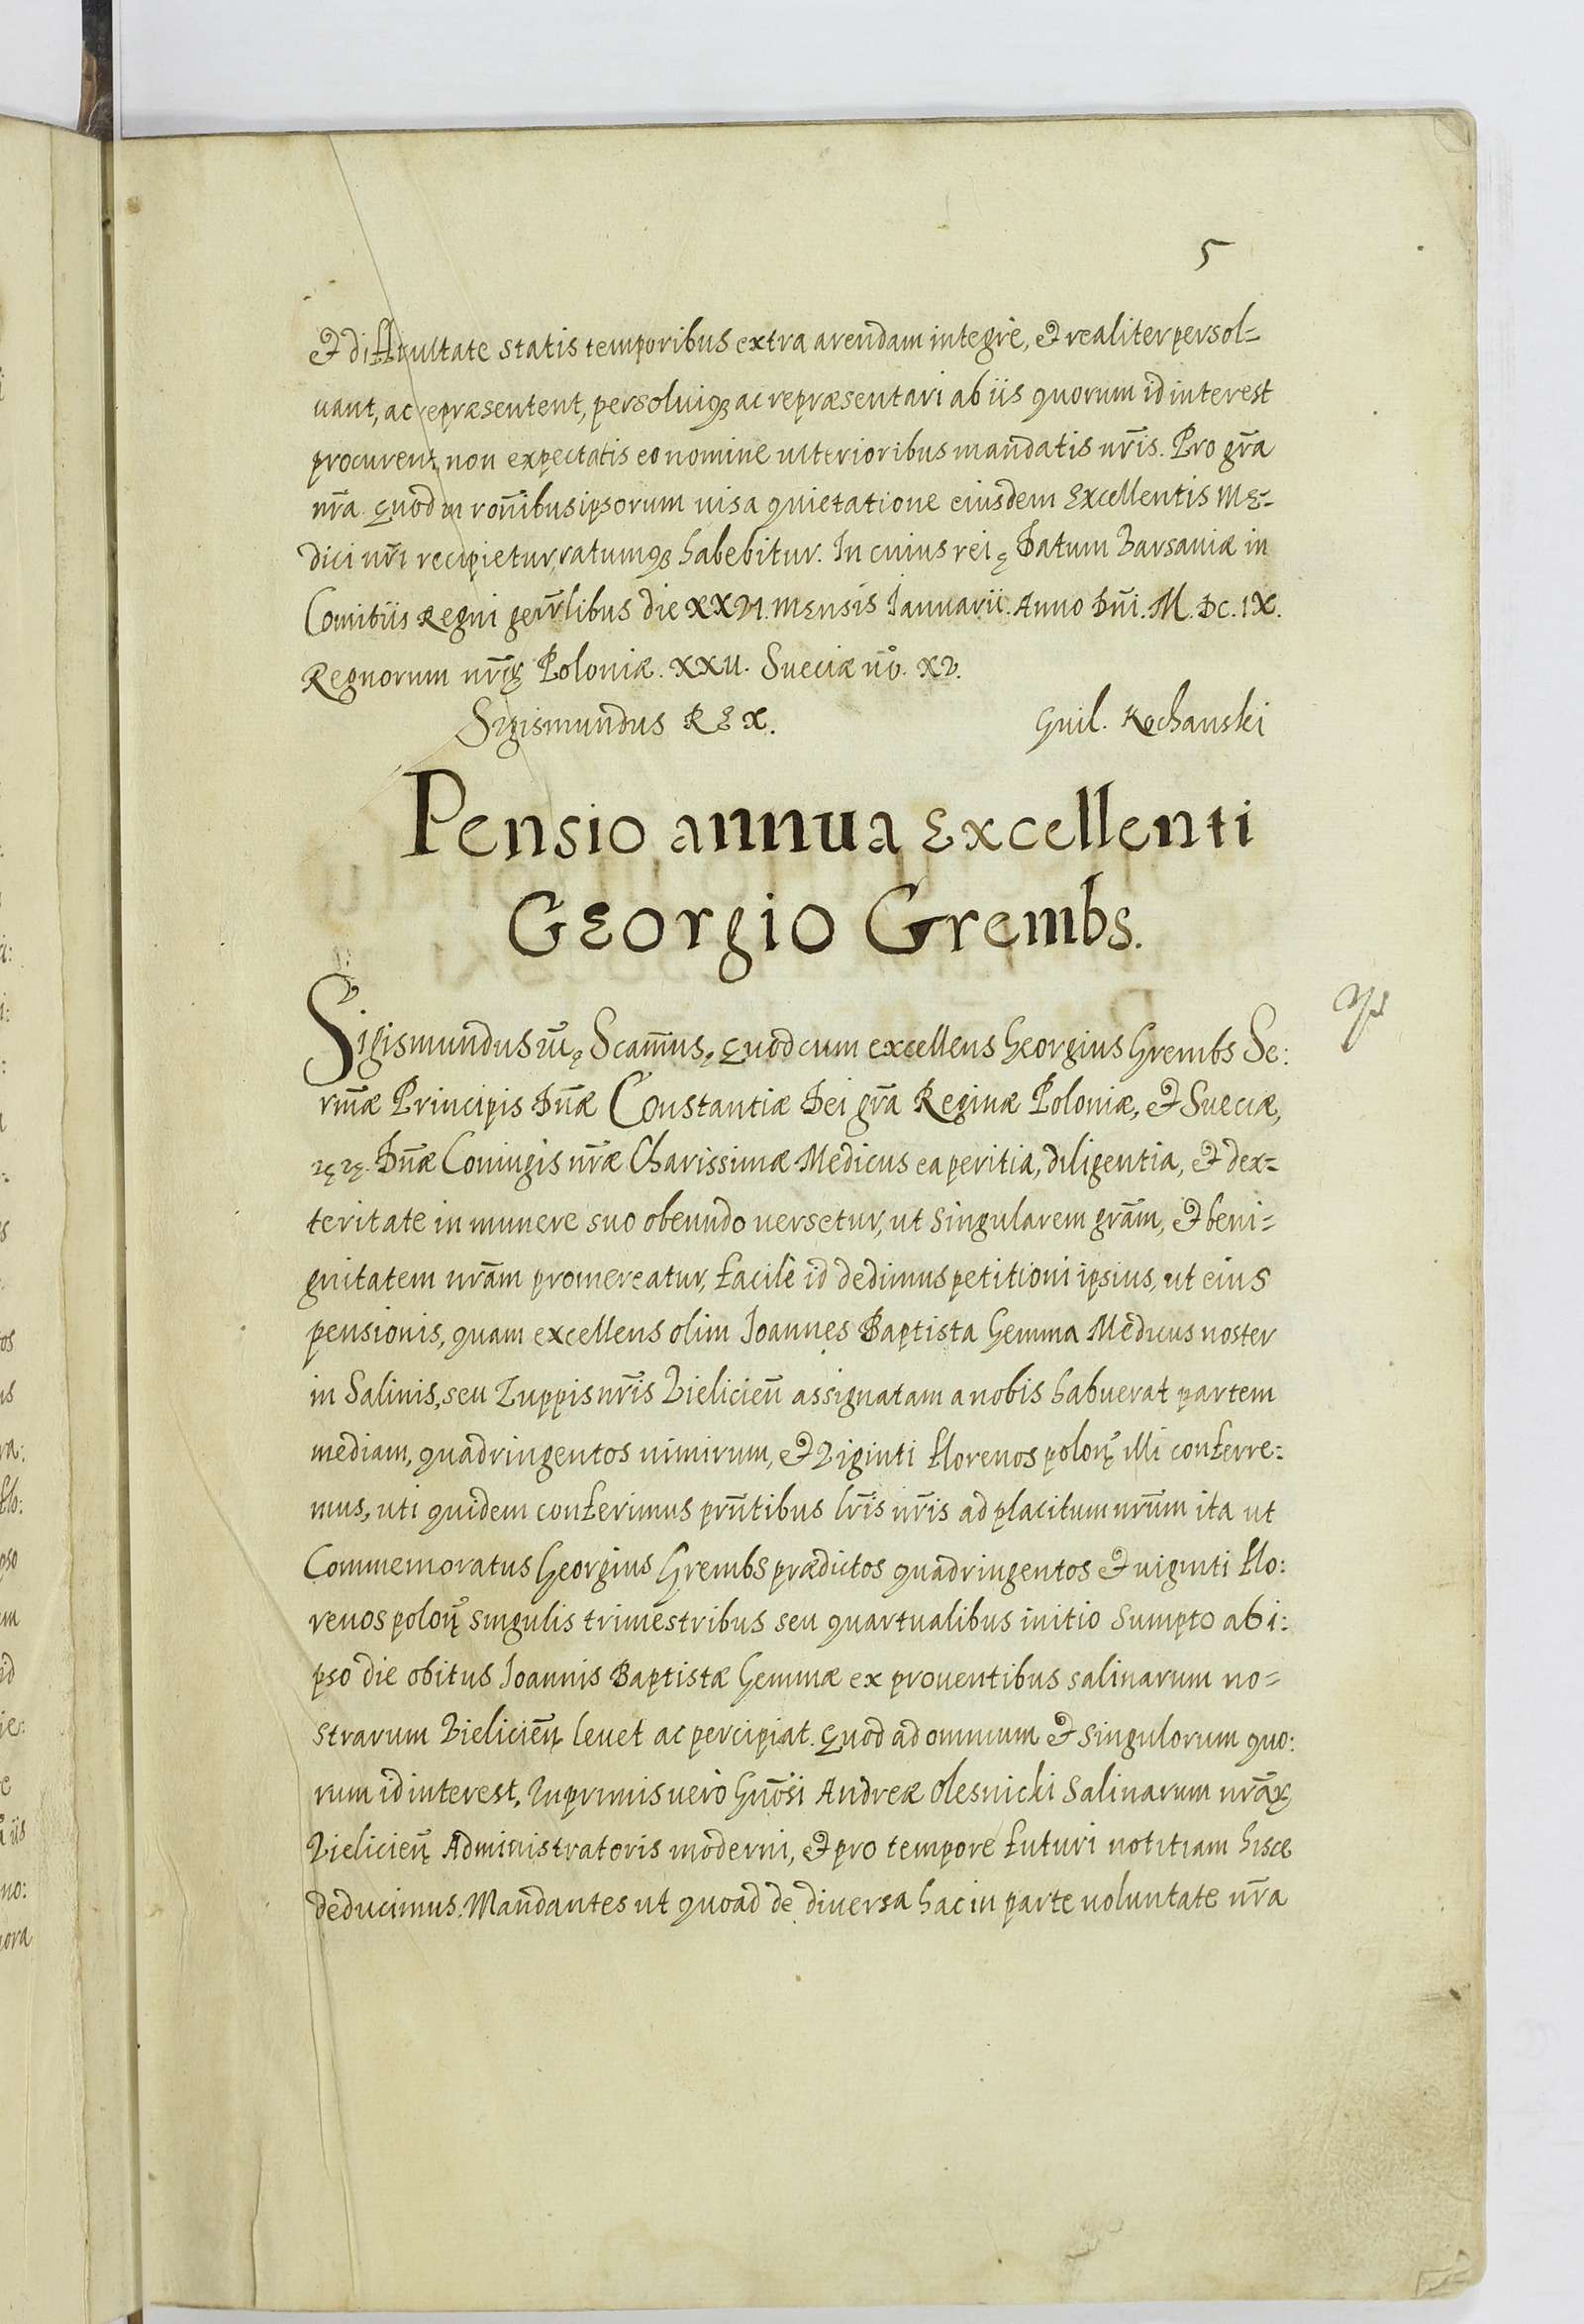 5
et difficultate statis temporibus extra arendam integrè, et realiter persol=
uant, ac repræsentent, persoluiq₃ ac repræsentari ab iis quorum id interest
procurent non expectatis eo nomine ulterioribus mandatis nr̃is. Pro gr̃a
nr̃a. Quod in ron̄ibus ipsorum uisa quietatione eiusdem Excellentis ME=
dici nr̃i recipietur, ratumq₃ habebitur. In cuius rei ę Datum Varsaviæ in
Comitiis Regni gen̄rlibus die XXVI. mensis Januarii. Anno Dn̄i. M. DC. IX.
Regnorum nr̃oꝝ Poloniæ. XXII. Sueciæ uo̊. XV.
Sigismundus REX.
Guil. Kochanski
Pensio annua Excellenti
GEorgio Grembs.
Sigismundus ę Scam̄us, Quod cum excellens Georgius Grembs Se:
rm̄æ Principis Dn̄æ Constantiæ Dei gr̃a Reginæ Poloniæ, et Sueciæ,
Dn̄æ Coniugis nr̃æ Charissimæ Medicus ea peritia, diligentia, et dex=
teritate in munere suo obeundo uersetur, ut singularem gr̃am, et beni=
gnitatem nr̃am promereatur, facilè id dedimus petitioni ipsius, ut eius
pensionis, quam excellens olim Joannes Baptista Gemma Medicus noster
in Salinis, seu Zuppis nr̃is Vielicien̄ assignatam a nobis habuerat partem
mediam, quadringentos nimirum, et Viginti florenos polon̨ illi conferre:
mus, uti quidem conferimus prn̄tibus lr̃is nr̃is ad placitum nr̃um ita ut
Commemoratus Georgius Grembs prædictos quadringentos et uiginti flo:
renos polon̨ singulis trimestribus seu quartualibus initio sumpto ab i:
pso die obitus Joannis Baptistæ Gemmæ ex prouentibus salinarum no=
strarum Vielicien̨ leuet ac percipiat. Quod ad omnium et singulorum quo:
rum id interest, Inprimis uerò Gn̄osi Andreæ Olesnicki Salinarum nr̃aꝝ
Vielicien̨ Administratoris moderni, et pro tempore futuri notitiam hisce
deducimus. Mandantes ut quoad de diuersa hac in parte uoluntate nr̃a